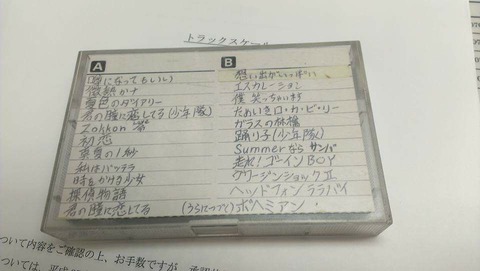 トラックスケール
A
嘘になってもいい
微熱かナ
夏色のダイアリー
君の瞳に恋してる(少年隊)
Zokkon 命
初恋
真夏の1秒
私はバッテラ
時をかける少女
探偵物語
君の瞳に恋してる
B
想い出がいっぱい
エスカレーション
僕笑っちゃいます
ためいきロ・カ・ビ・リー
ガラスの林檎
踊り子(少年隊)
Summerなら サンバ
走れ!ゴーインBOY
グリーンジンショックⅡ
ヘッドフォンララバイ
(うらにつづく)ボヘミアン
ついて内容をご確認の上、お手数ですが、
ついては、平成